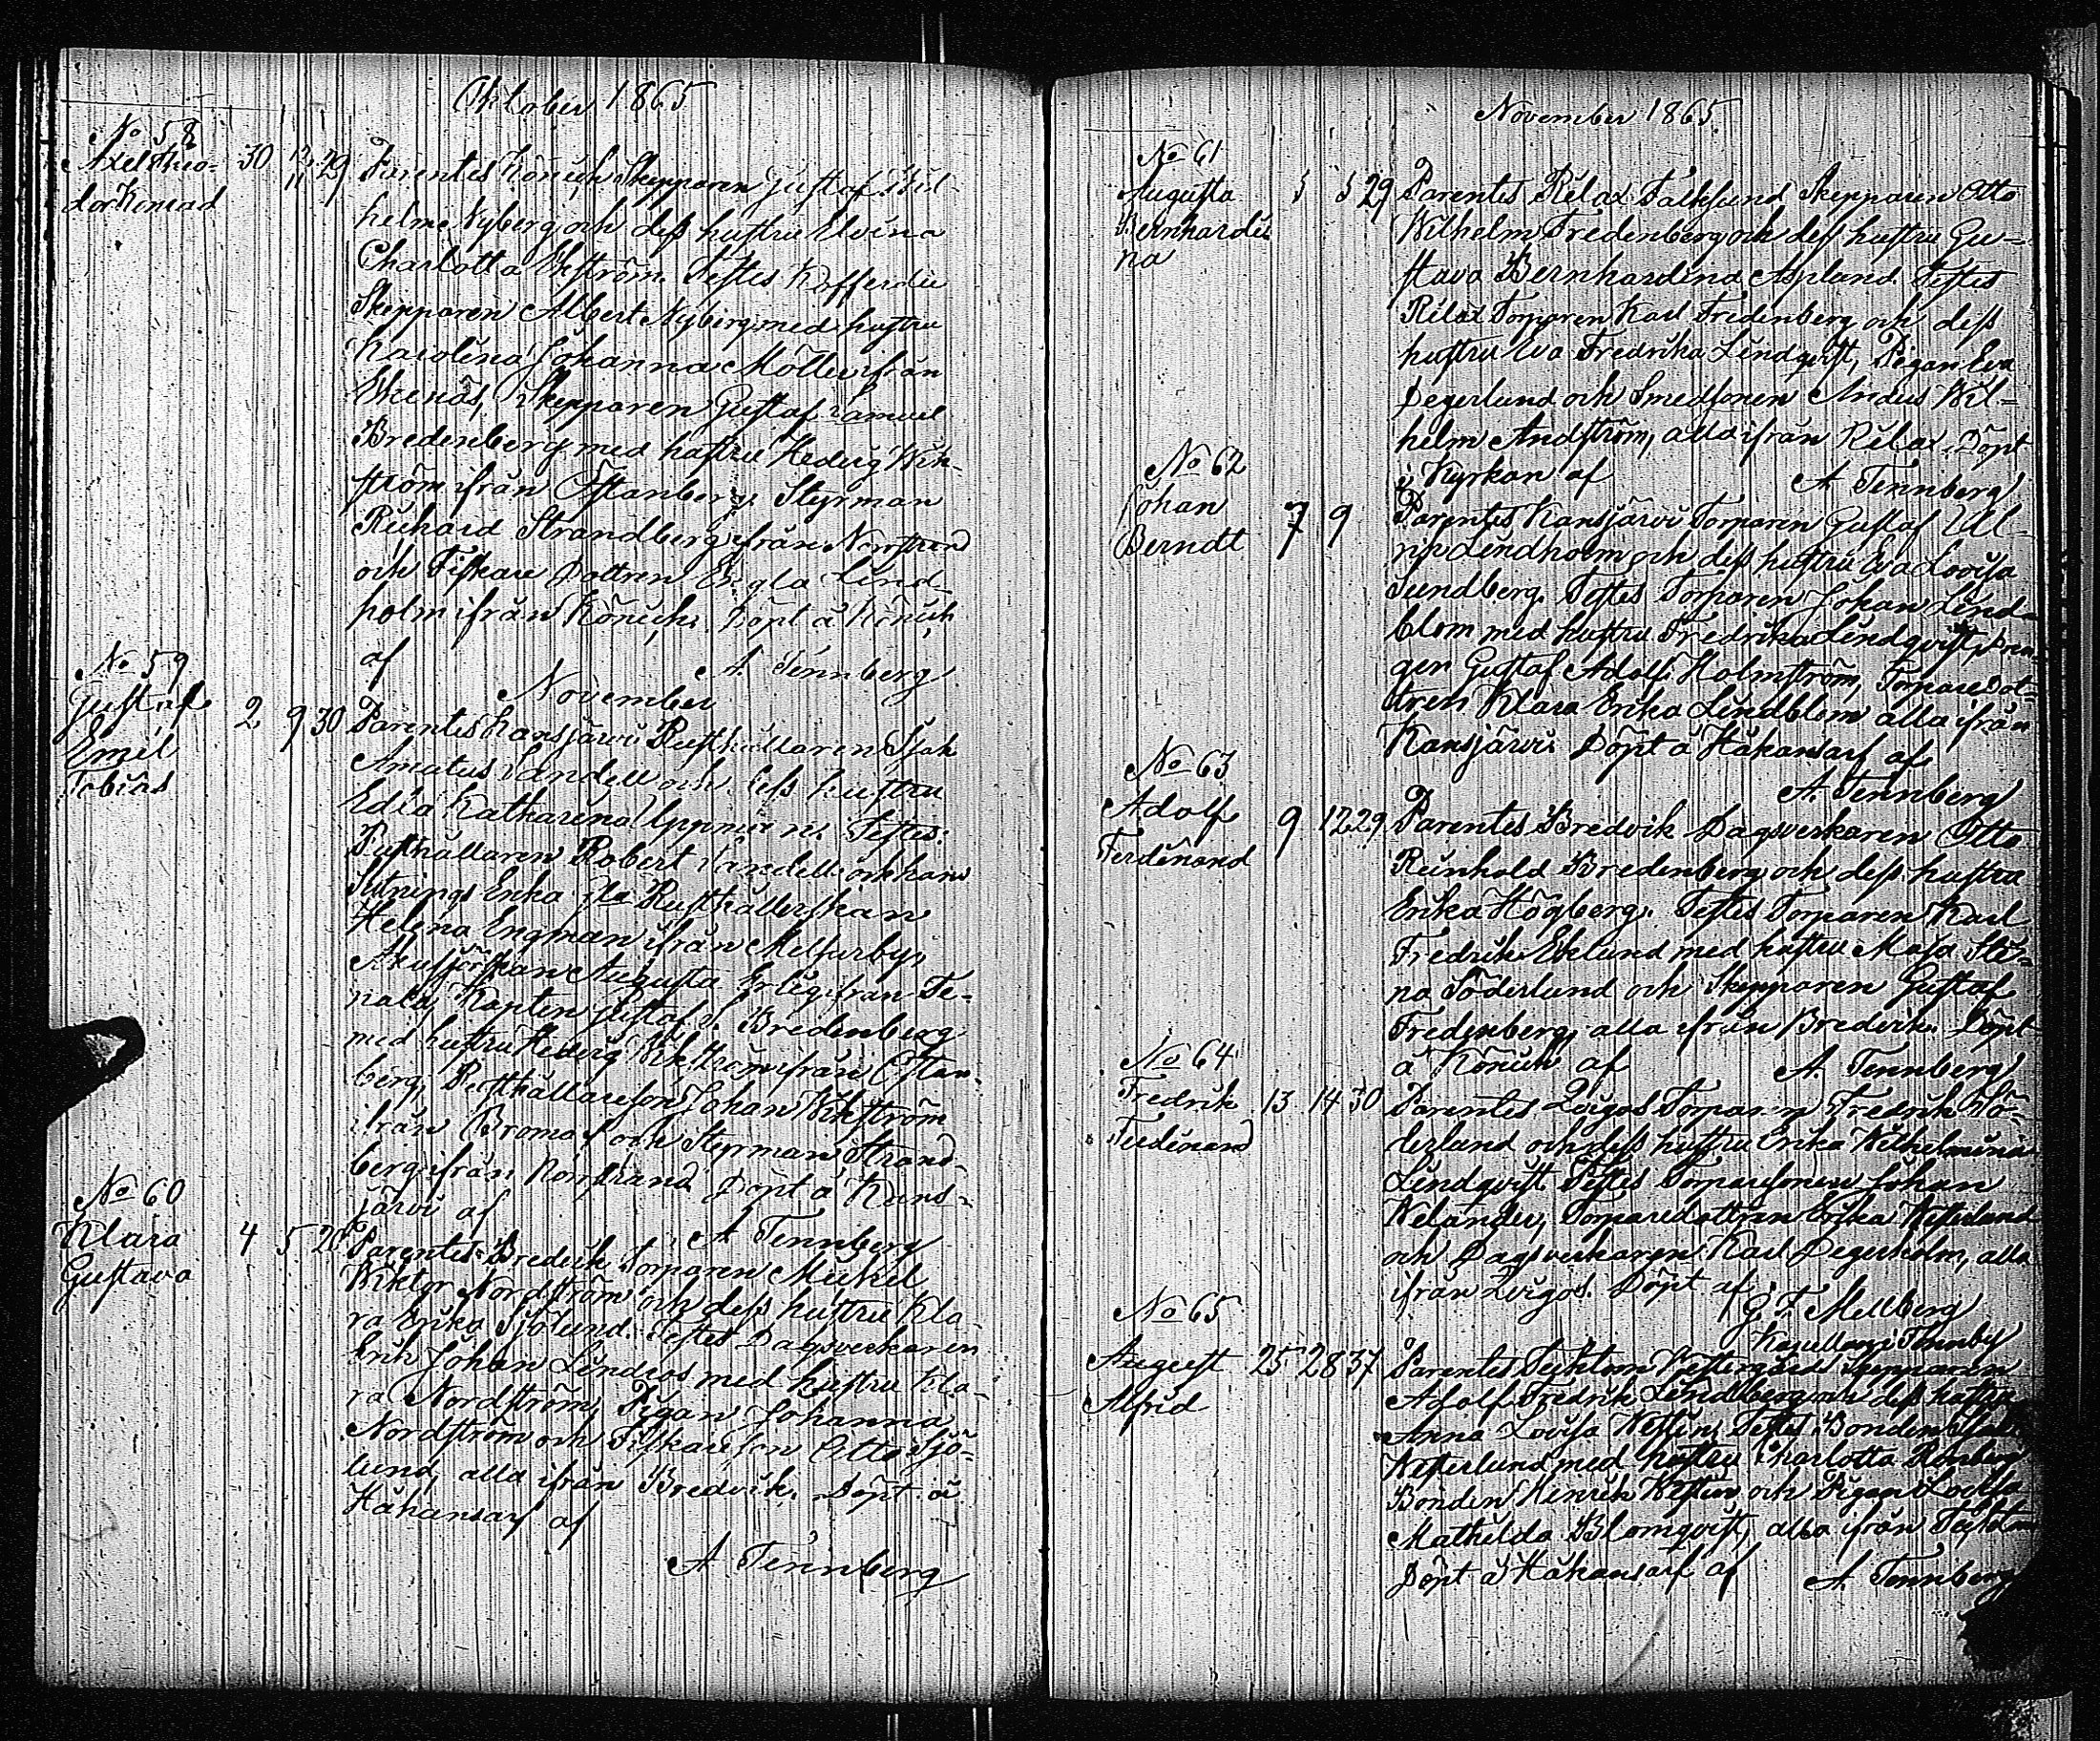 Oktober 1865
No 58
Axel Theo-
dor Konrad
30 12/11 29 Parentes Könick Skepparen Gustaf Wil-
helm Nyberg och dess hustru Elvina
Charlotta Ekström. Testes
Skepparen Albert Nyberg med hustru
Karolina Johanna Möller ifrån
Ekenäs, Skepparen Gustaf Samuel
Bredenberg med hustru Hedvig Wik-
ström ifrån Östanberg. Styrman
Richard Strandberg ifrån Norrstrand
och Fiskare Dottren Engla Lind-
holm ifrån Könick. Döpt å Könick
af A. Tennberg
November
No 59
Gustaf
Emil
Tobias
2 9 30 Parentes Kansjärvi Rusthållaren Isak
Amatus Sandell och dess hustru
Edla Katharina Testes:
Rusthållaren Robert Sandell och hans
Sutnings Enka Rusthållerskan
Helena Engman ifrån Melfarby,
Akusjörskan Augusta ifrån Te-
nala, Kapten Gustaf S. Bredenberg
med hustru Hedvig Wikström ifrån Östan-
berg, Rusthållareson Johan Wikström
ifrån Bromarf och Styrman Strand-
berg ifrån Norrstrand Döpt å Kans-
järvi af A Tennberg
No 60
Klara
Gustava
4 5 28 Parentes Bredvik Torparen Mickel
Wiktor Nordström och dess hustru Kla-
ra Erika Sjölund. Testes Dagsverkaren
Erik Johan Lindroos med hustru Kla-
ra Nordström, Pigan Johanna
Nordström och Fiskareson Otto Sjö-
lund, alla ifrån Bredvik. Döpt å
Håkansarf af
A Tennberg
November 1865
No 61
Augusta
Bernhardi
na
5 5 29 Parentes Rilax Falksund Skepparen Otto
Wilhelm Fredenberg och dess hustru Gu-
stava Bernhardina Asplund. Testes
Rilax Torparen Karl Fredenberg och dess
hustru Eva Fredrika Lindqvist, Pigan Eva
Degerlund och Smedsonen Anders Wil-
helm Andström, alla ifrån Rilax. Döpt
i Kyrkan af A. Tennberg
No 62
Johan
Berndt
7 9 Parentes Kansjärvi Torparen Gustaf Ul-
rik Lindholm och dess hustru Eva Lovisa
Sundberg. Testes Torparen Johan Lind-
blom med hustru Fredrika Lindqvist, Drän-
gen Gustaf Adolf Holmström, Torparedot-
tren Klara Erika Lindblom alla ifrån
Kansjärvi. Döpt å Håkansarf af
A. Tennberg
No 63
Adolf
Ferdinand
9 12 29 Parentes Bredvik Dagsverkaren Otto
Reinhold Bredenberg och dess hustru
Erika Högberg. Testes Torparen Karl
Fredrik Eklund med hustru Maja Sti-
na Söderlund och Skepparen Gustaf
Fredenberg, alla ifrån Bredvik. Döpt
å Könick af A. Tennberg
No 64
Fredrik
Ferdinand
13 14 30 Parentes Zvigos Torparen Fredrik Sö-
derlund och dess hustru Erika Wilhelmina
Lindqvist Testes Torparesonen Johan
Welander, Torparedottren Erika Westerlund
och Dagsverkaren Karl Degerholm, alla
ifrån Zvigos. Döpt af G. F. Mellberg
Kapellan i Tennby
No 65
August
Alfrid
25 28 37 Parentes Täcktom Westergård Skepparen
Adolf Fredrik Lindberg och dess hustru
Anna Lovisa Westin, Testes: Bonden Isak
Westerlund med hustru Charlotta Rönberg
Bonden Henrik Westin och Pigan Lovisa
Mathilda Blomqvist, alla ifrån Täcktom
Döpt å Håkansarf af A. Tennberg